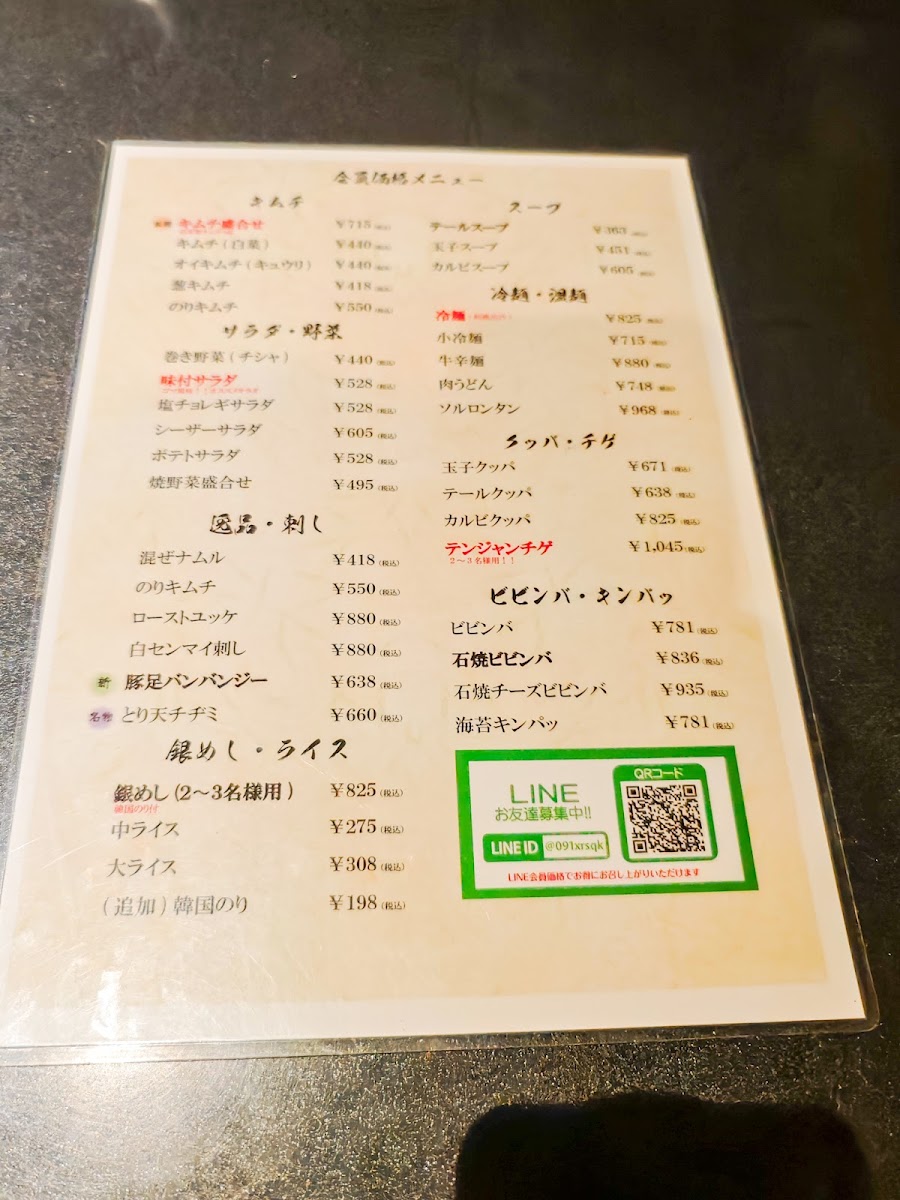 会員価格メニュー
キムチ
キムチ盛合せ ￥715 (税込)
キムチ(白菜) ￥440 (税込)
オイキムチ(キュウリ) ￥440 (税込)
葱キムチ ￥418 (税込)
のりキムチ ￥550 (税込)
サラダ・野菜
巻き野菜(チシャ) ￥440 (税込)
味付サラダ ￥528 (税込)
塩チョレギサラダ ￥528 (税込)
シーザーサラダ ￥605 (税込)
ポテトサラダ ￥528 (税込)
焼野菜盛合せ ￥495 (税込)
逸品・刺し
混ぜナムル ￥418 (税込)
のりキムチ ￥550 (税込)
ローストユッケ ￥880 (税込)
白センマイ刺し ￥880 (税込)
新 豚足バンバンジー ￥638 (税込)
名物 とり天チヂミ ￥660 (税込)
銀めし・ライス
銀めし(2〜3名様用) ￥825 (税込)
韓国のり付
中ライス ￥275 (税込)
大ライス ￥308 (税込)
(追加)韓国のり ￥198 (税込)
スープ
テールスープ ￥363 (税込)
玉子スープ ￥451 (税込)
カルビスープ ￥605 (税込)
冷麺・温麺
冷麺 ￥825 (税込)
小冷麺 ￥715 (税込)
牛辛麺 ￥880 (税込)
肉うどん ￥748 (税込)
ソルロンタン ￥968 (税込)
クッパ・チゲ
玉子クッパ ￥671 (税込)
テールクッパ ￥638 (税込)
カルビクッパ ￥825 (税込)
テンジャンチゲ ￥1,045 (税込)
2〜3名様用！！
ビビンバ・キンパッ
ビビンバ ￥781 (税込)
石焼ビビンバ ￥836 (税込)
石焼チーズビビンバ ￥935 (税込)
海苔キンパッ ￥781 (税込)
LINE
お友達募集中!!
LINE ID @091xrsqk
QRコード
LINE会員価格でお得にお召し上がりいただけます